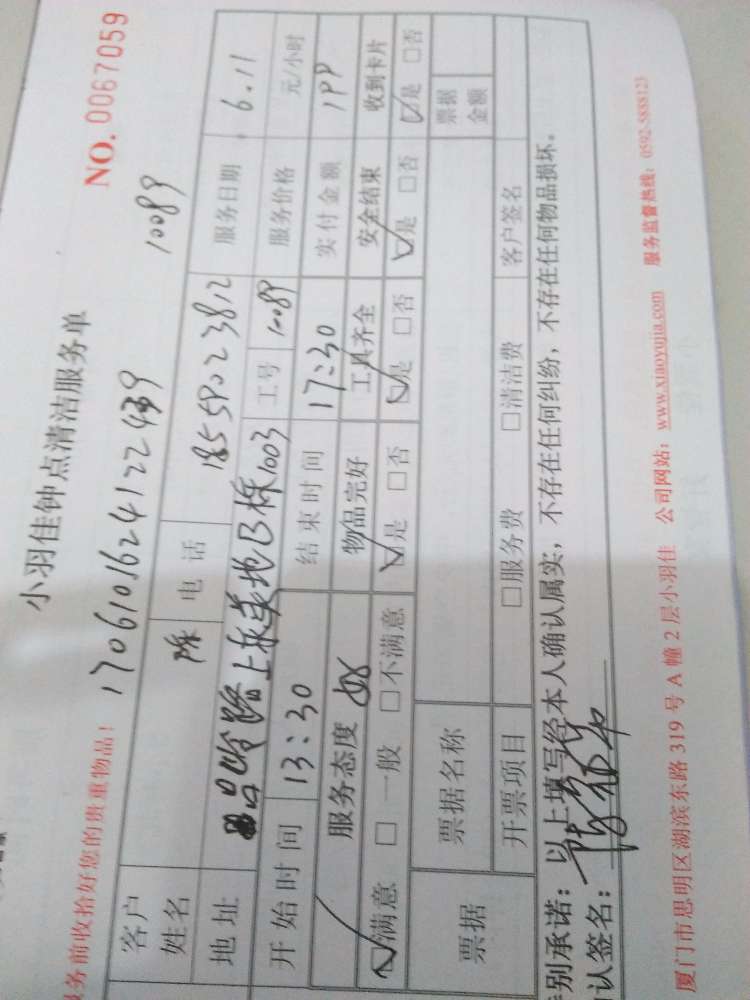 小羽佳钟点清洁服务单
NO. 0067059
务前收拾好您的贵重物品! 17061016241122439 10089
客户姓名 陈 电话 18559023812 服务日期 6.11
地址 吕岭路上东美地B栋1003 工号 10089 服务价格 元/小时
开始时间 13:30 结束时间 17:30 实付金额 199
服务态度 物品完好 工具齐全 安全结束 收到卡片
☑满意 □一般 □不满意 ☑是 □否 ☑是 □否 ☑是 □否 ☑是 □否
票据 票据名称 票据金额
开票项目 □服务费 □清洁费 客户签名
别承诺：以上填写经本人确认属实，不存在任何纠纷，不存在任何物品损坏。
认签名：
厦门市思明区湖滨东路 319 号 A 幢 2 层小羽佳 公司网站：www.xiaoyujia.com 服务监督热线：0592-5888123